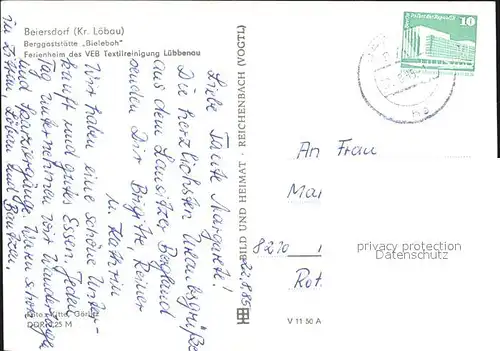 Beiersdorf (Kr. Löbau)
Berggaststätte „Bieleboh"
Ferienheim des VEB Textilreinigung Lübbenau
22.8.85
Liebe Tante Margarete!
Die herzlichsten Urlaubsgrüße
aus dem Lausitzer Bergland
senden Dir Brigitte, Reiner
u. Kathrin
Wir haben eine schöne Unter-
kunft und gutes Essen. Jeden
Tag unternehmen wir Wanderungen
und Spaziergänge. Waren schon
in Zittau, Löbau und Bautzen.
Foto: Kittel, Görlitz
DDR 0,25 M
BILD UND HEIMAT · REICHENBACH (VOGTL)
V 11 50 A
Palast der Republik
10
DDR
An Frau
Mar
8270
Rot
privacy protection
veryimportantlot.com